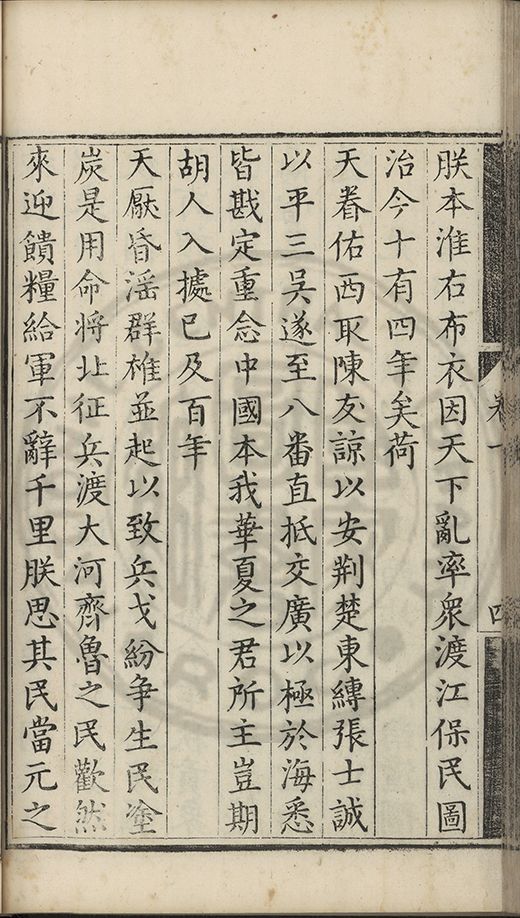 卷一
四
朕本淮右布衣因天下亂率眾渡江保民圖
治今十有四年矣荷
天眷佑西取陳友諒以安荆楚東縛張士誠
以平三吳遂至八番直抵交廣以極於海悉
皆戡定重念中國本我華夏之君所主豈期
胡人入據已及百年
天厭昏滛群雄並起以致兵戈紛争生民塗
炭是用命將北征兵渡大河齊魯之民歡然
來迎饋糧給軍不辭千里朕思其民當元之